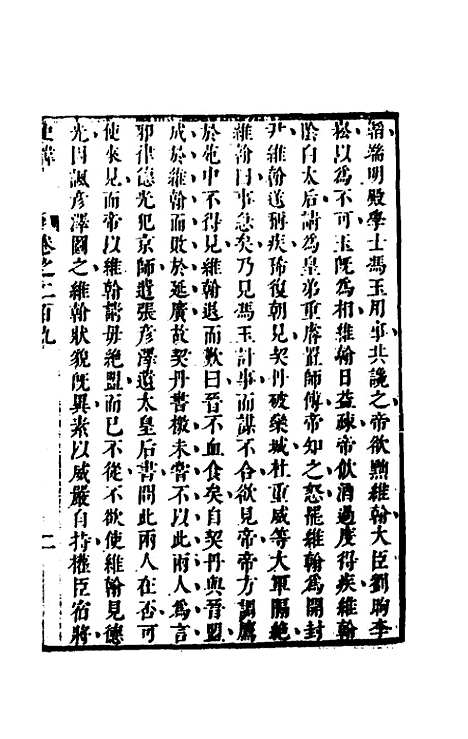 端明殿學士馮玉用事共讒之帝欲黜維翰大臣劉昫李
崧以爲不可玉既爲相維翰日益疎帝飲酒過度得疾維翰
陰白太后請爲皇弟重睿置師傅帝知之怒罷維翰爲開封
尹維翰遂稱疾稀復朝見契丹破欒城杜重威等大軍隔絶
維翰曰事急矣乃見馮玉計事而謀不合欲見帝帝方調鷹
於苑中不得見維翰退而歎曰晉不血食矣自契丹與晉盟
成於維翰而敗於延廣故契丹書檄未嘗不以此兩人爲言
耶律德光犯京師遣張彦澤遺太皇后書問此兩人在否可
使來見而帝以維翰嘗毋絶盟而已不從不欲使維翰見德
光因諷彦澤圖之維翰狀貌既異素以威嚴自持權臣宿將
卷之二百九 二